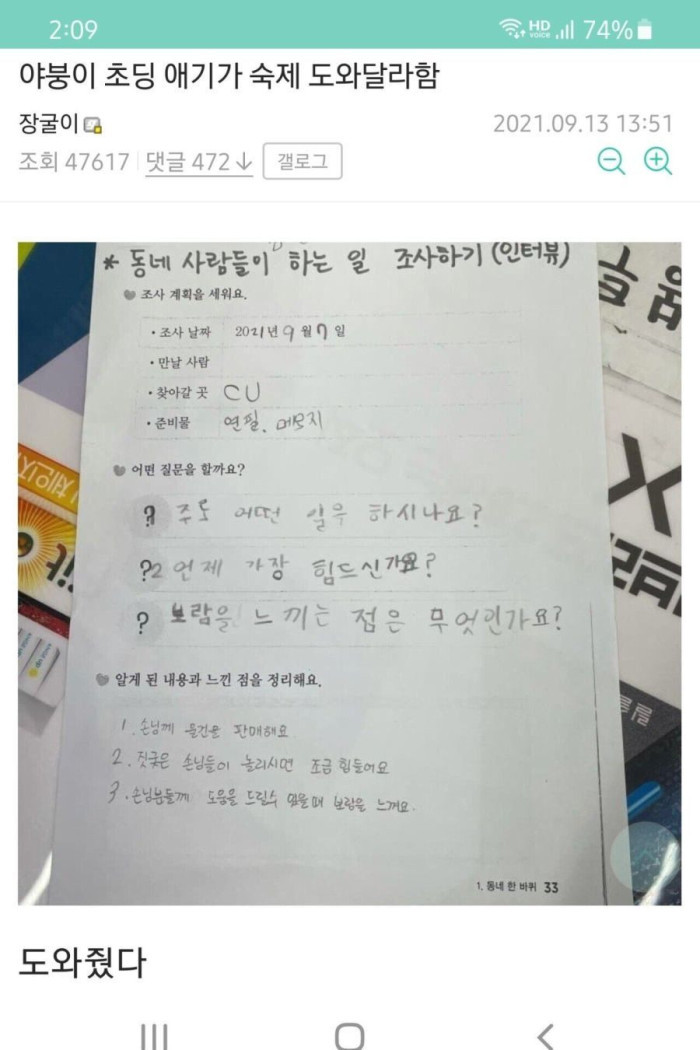 2:09
HD voice 74%
야붕이 초딩 애기가 숙제 도와달라함
장굴이
2021.09.13 13:51
조회 47617 댓글 472↓ 갤로그
* 동네 사람들이 하는 일 조사하기 (인터뷰)
조사 계획을 세워요.
• 조사 날짜 2021년 9월 7일
• 만날 사람
• 찾아갈 곳 CU
• 준비물 연필, 메모지
어떤 질문을 할까요?
? 주로 어떤 일을 하시나요?
?2 언제 가장 힘드신가요?
? 보람을 느끼는 점은 무엇인가요?
알게 된 내용과 느낀 점을 정리해요.
1. 손님께 물건을 판매해요
2. 짓궂은 손님들이 놀리시면 조금 힘들어요
3. 손님분들께 도움을 드릴수 있을때 보람을 느껴요.
1. 동네 한 바퀴 33
도와줬다